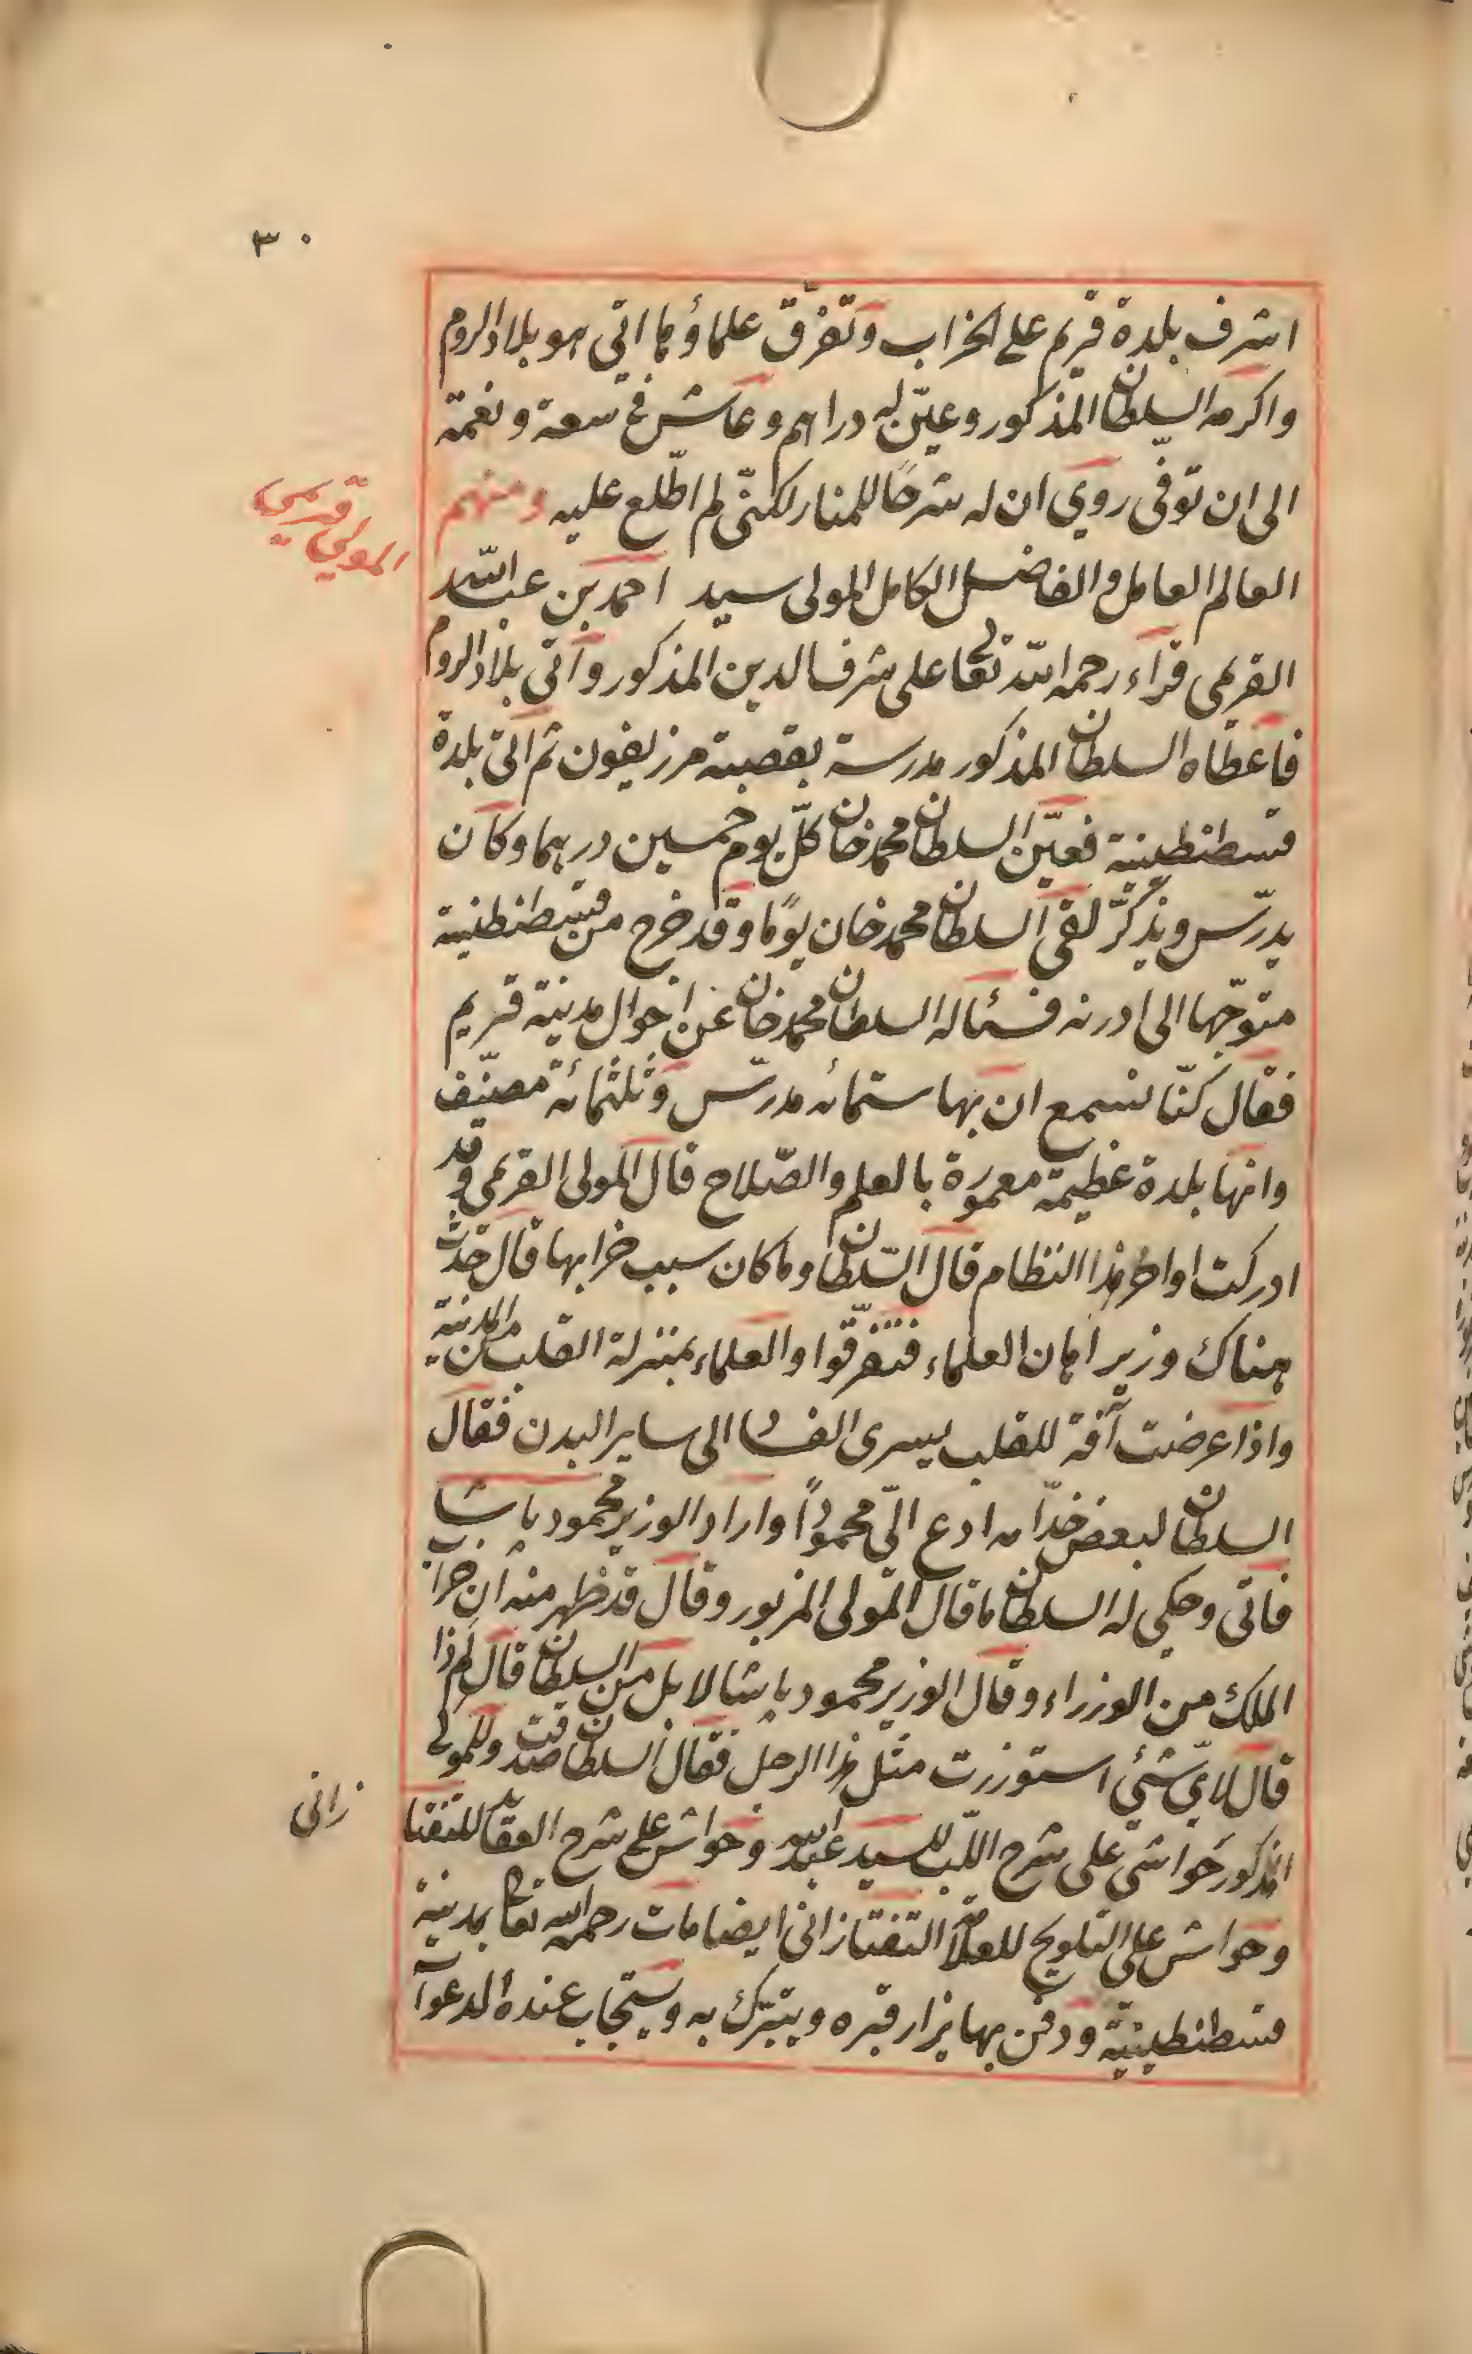 ٣٠
اشرف بلدة قريم على الخراب وتفرّق علماؤها اتى هو بلاد الروم
واكرمه السلطان المذكور وعيّن له دراهم وعاش في سعة ونعمة
الى ان توفى روي ان له شرحًا للمنار لكنّى لم اطّلع عليه ومنهم
المولى قريمى
العالم العامل والفاضل الكامل المولى سيد احمد بن عبد الله
القريمى قراء رحمه الله تعالى على شرف الدين المذكور وأتى بلاد الروم
فاعطاه السلطان المذكور مدرسة بقصبة مرزيفون ثم اتى بلدة
قسطنطينية فعيّن السلطان محمد خان كلّ يوم خمسين درهما وكان
يدرّس ويذكّر لقى السلطان محمد خان يومًا وقد خرج من قسطنطنية
متوجّها الى ادرنه فسئاله السلطان محمد خان عن احوال مدينة قريم
فقال كنّا نسمع ان بها ستمائه مدرّس وثلثمائة مصنّف
وانها بلدة عظيمة معمورة بالعلم والصّلاح قال المولى القريمى وقد
ادركت اواخر هذا النظام قال السّلطان وما كان سبب خرابها قال حدث
هناك وزير اهان العلماء فتفرّقوا والعلماء بمنزلة القلب من المدينة
واذا عرضت آفة للقلب يسرى الفساد الى ساير البدن فقال
السلطان لبعض خدّامه ادع الىّ محمودًا واراد الوزير محمود پاشا
فاتى وحكى له السلطان ما قال المولى المزبور وقال قد ظهر منه ان خراب
الملك من الوزراء وقال الوزير محمود پاشا لا بل من السلطان قال لم ذا
قال لايّ شئ استوزرت مثل هذا الرجل فقال السلطان صدقت وللمولى
المذكور حواشى على شرح اللّب للسيد عبد الله وحواش على شرح العقائد للتفتا
زانى
وحواش على التلويح للعلّامة التفتازانى ايضا مات رحمه الله تعالى بمدينة
قسطنطينيّة ودفن بها يزار قبره ويتبرّك به ويستجاب عنده الدعوات